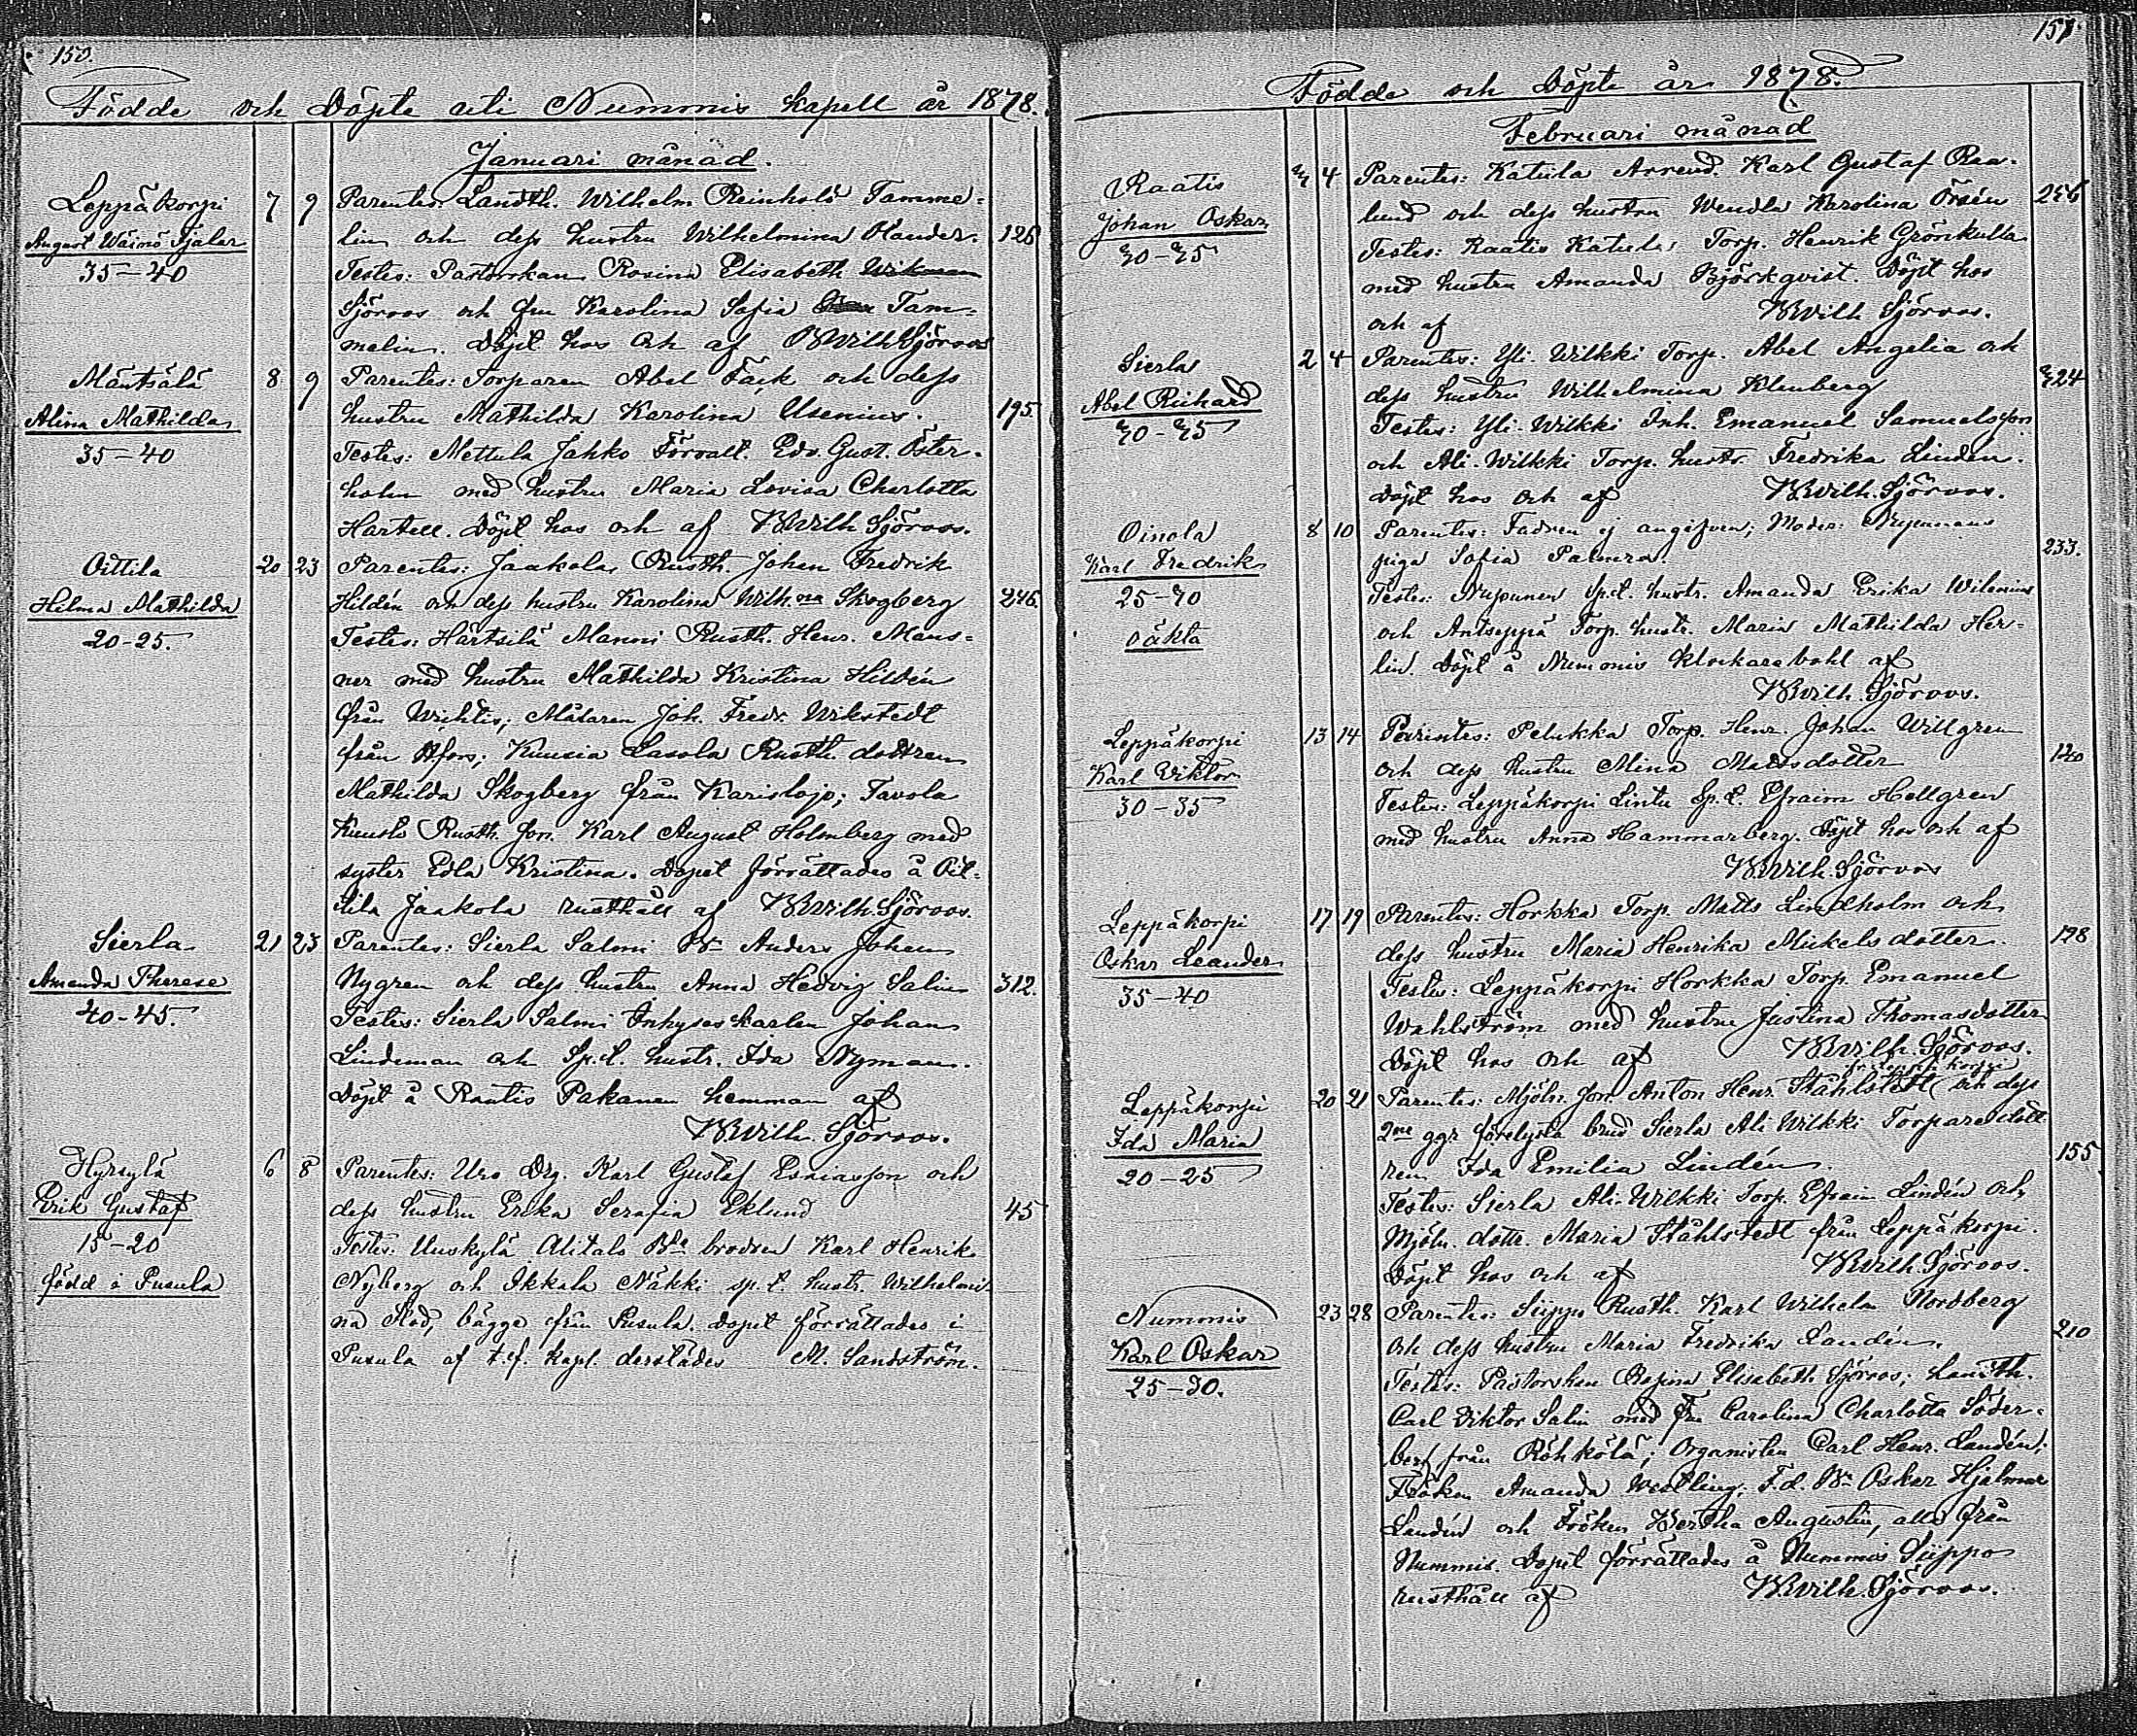 150.
Födde och Döpte uti Nummis kapell år 1878.
Januari månad.
Leppäkorpi 7 9 Parentes: Landth. Wilhelm Reinhold Tamme-
August Wäinö Fjalar lin och dess hustru Wilhelmina Olander. 126
35-40 Testes: Pastorskan Rosina Elisabeth Wikman
Sjöroos och fru Karolina Sofia Tam-
melin. Döpt hos och af Wilh Sjöroos
Mäntsälä 8 9 Parentes: Torparen Abel Fäck och dess
Alina Mathilda hustru Mathilda Karolina Usenius. 195.
35-40 Testes: Mettula Jahko Förvalt. Edv. Gust. Öster-
holm med hustru Maria Lovisa Charlotta
Hartell. Döpt hos och af Wilh Sjöroos.
Oittila 20 23 Parentes: Jaakola Rusth. Johan Fredrik
Hilma Mathilda Hildén och dess hustru Karolina Wilh.na Skogberg 246.
20-25. Testes: Härtsilä Manni Rusth. Henr. Mans-
ner med hustru Mathilda Kristina Hildén
från Wichtis; Målaren Joh. Fredr. Wikstedt
från Hfors; Kuusia Lasola Rusth. dottren
Mathilda Skogberg från Karislojo; Tavola
Kuusto Rusth. son. Karl August Holmberg med
syster Edla Kristina. Dopet förrättades å Oit-
tila Jaakola rusthåll af Wilh. Sjöroos.
Sierla 21 23 Parentes: Sierla Salmi Bn Anders Johan
Amanda Therese Nygren och dess hustru Anna Hedvig Salin 312.
40-45. Testes: Sierla Salmi Inhyseskarlen Johan
Lindeman och Sp.t. hustr. Ida Nyman.
Döpt å Raatis Pakanen hemman af
Wilh. Sjöroos.
Hyrsylä 6 8 Parentes: Uro Drg. Karl Gustaf Esaiasson och
Erik Gustaf dess hustru Erika Serafia Eklund 45
15-20 Testes: Uuskylä Alitalo Bde brodren Karl Henrik
född i Pusula Nyberg och Ikkala Näkki sp.t. hustr. Wilhelmi-
na Stod, bägge från Pusula. Dopet förrättades i
Pusula af t.f. kapl. derstädes M. Sandström.
151.
Födde och Döpte år 1878.
Februari månad
Raatis 2 4 Parentes: Katula Arrend. Karl Gustaf Roa-
Johan Oskar lund och dess hustru Wendla Karolina Örsén 256
30-35 Testes: Raatis Katula Torp. Henrik Grönkulla
med hustru Amanda Björkqvist. Döpt hos
och af Wilh Sjöroos.
Sierla 2 4 Parentes: Yli-Wilkki Torp. Abel Angelia och
Abel Richard dess hustru Wilhelmina Klenberg 324
30-35 Testes: Yli-Wilkki Inh. Emanuel Samuelsson
och Ali-Wilkki Torp. hustr. Fredrika Linden.
Döpt hos och af Wilh. Sjöroos.
Oinola 8 10 Parentes: Fadren ej angifven; Moder: Nypenens
Karl Fredrik piga Sofia Palmra. 233.
25-30 Testes: Nypunen Sp.t. hustr. Amanda Erika Wilenius
oäkta och Antseppä Torp. hustr. Maria Mathilda Her-
lin. Döpt å Nummis klockarebohl af
Wilh. Sjöroos.
Leppäkorpi 13 14 Parentes: Pelukka Torp. Henr. Johan Willgren
Karl Viktor och dess hustru Mina Mattsdotter 120
30-35 Testes: Leppäkorpi Lintu Sp.t. Efraim Hellgren
med hustru Anna Hammarberg. Döpt hos och af
Wilh. Sjöroos
Leppäkorpi 17 19 Parentes: Horkka Torp. Matts Lindholm och
Oskar Leander dess hustru Maria Henrika Mickelsdotter. 128
35-40 Testes: Leppäkorpi Horkka Torp. Emanuel
Wahlström med hustru Justina Thomasdotter
Döpt hos och af Wilh. Sjöroos.
fr. Leppäkorpi
Leppäkorpi 20 21 Parentes: Mjöln. son Anton Henr. Ståhlstedt och dess
Ida Maria 2ne ggr förelysta brud Sierla Ali Wilkki Torparedott-
20-25 ren Ida Emilia Lindén. 155
Testes: Sierla Ali-Wilkki Torp. Efraim Lindén och
Mjöln. dottr. Maria Ståhlstedt från Leppäkorpi.
Döpt hos och af Wilh. Sjöroos.
Nummis 23 28 Parentes: Siippo Rusth. Karl Wilhelm Nordberg
Karl Oskar och dess hustru Maria Fredrika Landén. 210
25-30. Testes: Pastorskan Rosina Elisabeth Sjöroos; Landth.
Carl Viktor Salin med fru Carolina Charlotta Söder-
berg från Röhkölä; Organisten Carl Henr. Landén;
Fröken Amanda Westling; F.d. Bn Oskar Hjalmar
Landén och Fröken Bertha Augustin, alla från
Nummis. Dopet förrättades å Nummis Siippo
rusthåll af Wilh. Sjöroos.